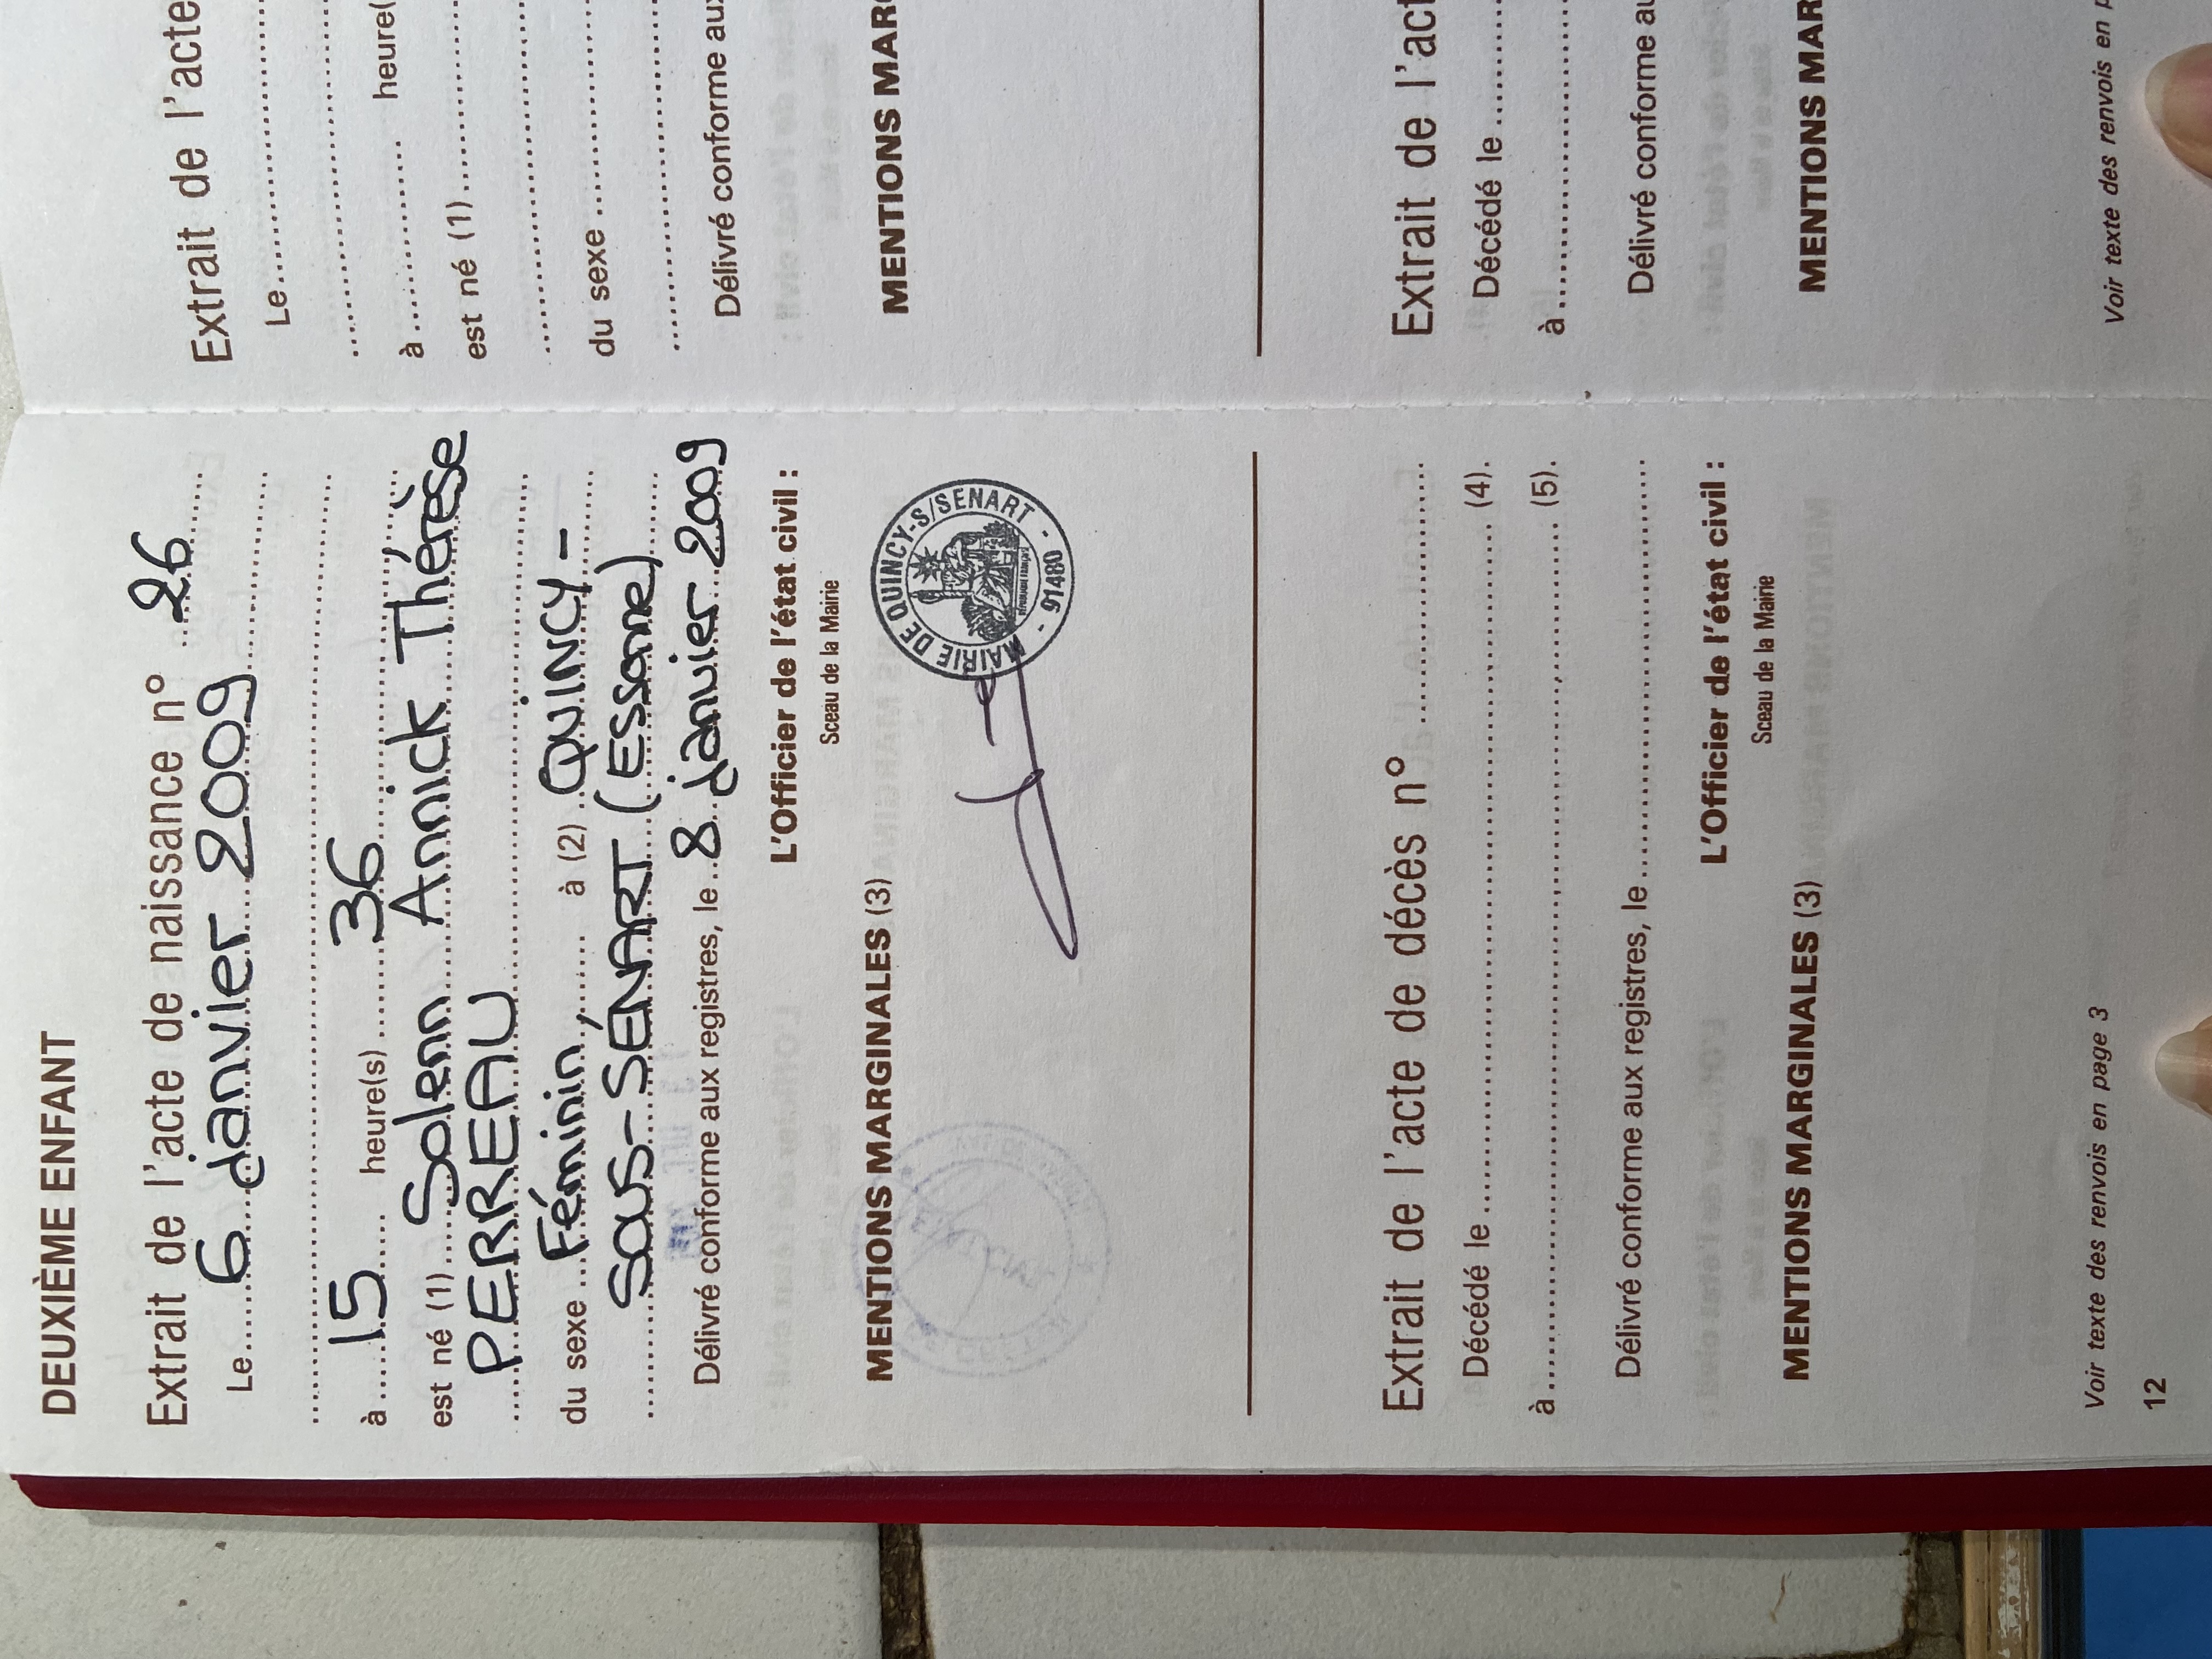 DEUXIÈME ENFANT
Extrait de l'acte de naissance n° 26
Le 6 janvier 2009
à 15 heure(s) 36
est né (1) Solenn Annick Thérèse
PERREAU
du sexe Féminin, à (2) QUINCY-
SOUS-SÉNART (Essonne)
Délivré conforme aux registres, le 8 janvier 2009
L'Officier de l'état civil :
Sceau de la Mairie
MENTIONS MARGINALES (3)
MAIRIE DE QUINCY-S/SENART - 91480 -
RÉPUBLIQUE FRANÇAISE
Extrait de l'acte de décès n°
Décédé le (4).
à (5).
Délivré conforme aux registres, le
L'Officier de l'état civil :
Sceau de la Mairie
MENTIONS MARGINALES (3)
Voir texte des renvois en page 3
12
Extrait de l'acte
Le
à heure(
est né (1)
du sexe
Délivré conforme aux
MENTIONS MAR
Extrait de l'act
Décédé le
à
Délivré conforme au
MENTIONS MAR
Voir texte des renvois en p